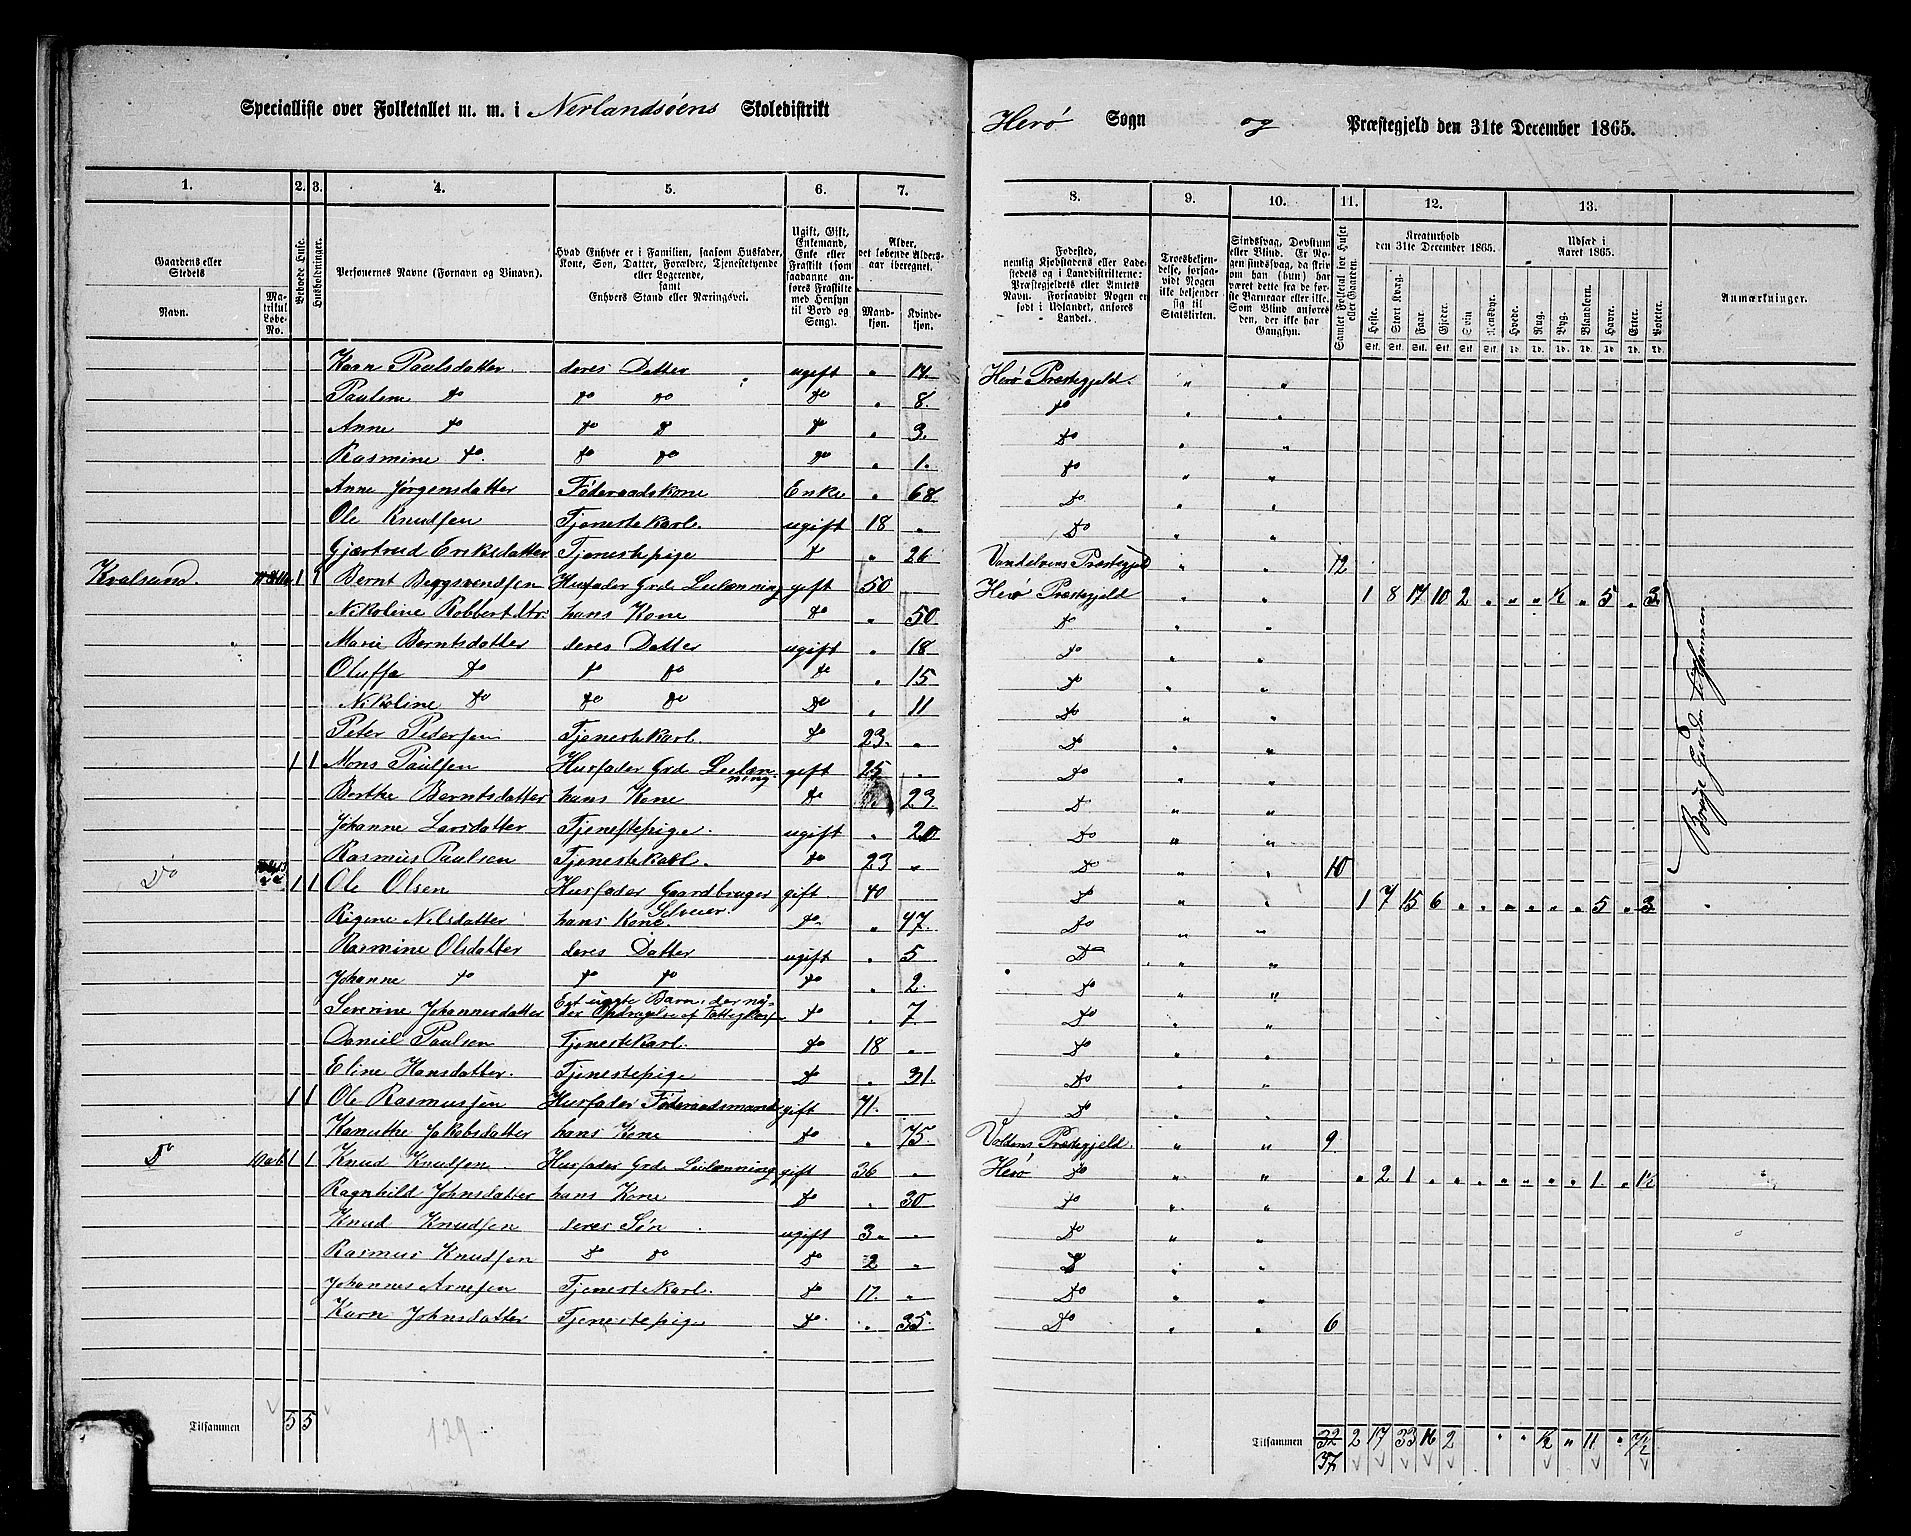 Specialliste over Folketallet m. m. i Nerlandsöens Skoledistrikt
Herö Sogn og Præstegjeld den 31te December 1865.
1. 2. 3. 4. 5. 6. 7.
8. 9. 10. 11. 12. 13.
Gaardens eller Stedets
Navn.
Matrikul Løbe-No.
Beboede Huse.
Husholdninger.
Personernes Navne (Fornavn og Tilnavn).
Hvad Enhver er i Familien, saasom Husfader, Kone, Søn, Datter, Forældre, Tjenestetyende eller Logerende, samt Enhvers Stand eller Næringsvei.
Ugift, Gift, Enkemand, Enke eller Fraskilt (som saadanne anføres Fraskilte med Hensyn til Bord og Seng).
Alder, det løbende Aldersaar iberegnet.
Mandkjøn. Kvindekjøn.
Fødested, nemlig Kjøbstedens eller Ladestedets og i Landdistrikterne: Præstegjeldets eller Amtets Navn. Forsaavidt Nogen er født i Udlandet, anføres Landet.
Troesbekjendelse, forsaavidt Nogen ikke bekjender sig til Statskirken.
Sindssvag, Døvstum eller Blind.
Samlet Folketal for Huset eller Gaarden.
Kreaturhold den 31te December 1865.
Heste. Stort Kvæg. Faar. Gjeder. Svin. Rensdyr.
Udsæd i Aaret 1865.
Hvede. Rug. Byg. Blandkorn. Havre. Erter. Poteter.
Anmærkninger.
Karn Paulsdatter deres Datter ugift " 17. Herö Præstegjeld. " "
Pauline do do do do " 8. do " "
Anne do do do do " 3. Do " "
Rasmine do. do do do " 1. do " "
Anne Jørgensdatter Føderaadskone Enke " 68. Do " "
Ole Knudsen Tjenestekarl. ugift 18 " Do " "
Gjærtrud Eriksdatter Tjenestepige do " 26 Vandelvens Præstegjeld " " 12
Kvalsund. 1 1 Bernt Husfader Grdb Leilænning gift 50 Herö Præstegjeld " " 1 8 17 10 2 " " " ½ " 5 " 3
Nikoline Robbertdtr. hans Kone do " 50 Do " "
Marie Berntsdatter deres Datter ugift " 18 Do " "
Oluffa do do do do " 15 Do " "
Nikoline do do do do " 11 Do " "
Peter Pedersen Tjenestekarl. do 23. " Do " "
1 1 Mons Paulsen Husfader Grdb Leilænning gift 25 " Do " "
Berthe Berntsdatter hans Kone do 23 Do " "
Johanne Larsdatter Tjenestepige. ugift " 20 Do " "
Rasmus Paulsen Tjenestekarl. do 23 " Do " " 10
Begge Gaarder tilsammen
Do 1 1 Ole Olsen Husfader Gaardbruger Selveier. gift 40 Do " " 1 7 15 6 " " " " " " 5 " 3
Rigene Nilsdatter hans Kone do " 47. Do " "
Rasmine Olsdatter deres Datter ugift " 5 Do " "
Johanne do do do do " 2. Do " "
Severine Johannesdatter do " 7. Do " "
Daniel Paulsen Tjenestekarl. do 18 " Do " "
Eline Hansdatter. Tjenestepige do " 31. Do " "
1 1 Ole Rasmussen Husfader Føderaadsmand gift 71. Do " "
Kanutke Jakobsdatter hans Kone do " 75. Voldens Præstegjeld " " 9.
Do 1 1 Knud Knudsen. Husfader Grdb Leilænning gift 36 " Herö Do " " " 2 1 " " " " " " " 1 " 1½
Ragnhild Johnsdatter hans Kone do " 30 Do " "
Knud Knudsen deres Søn ugift 3. " Do " "
Rasmus Knudsen do do do 2 " Do " "
Johannes Arnesen Tjenestekarl. do 17. " Do " "
Karn Johnsdatter Tjenestepige do " 35. Do " " 6
Tilsammen 5 5
129
Tilsammen 32 2 17 33 16 2 " " ½ " 11 " 7½
37